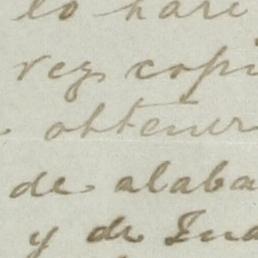 lo haré
vez copi
obtener
de alaba
y de Ind